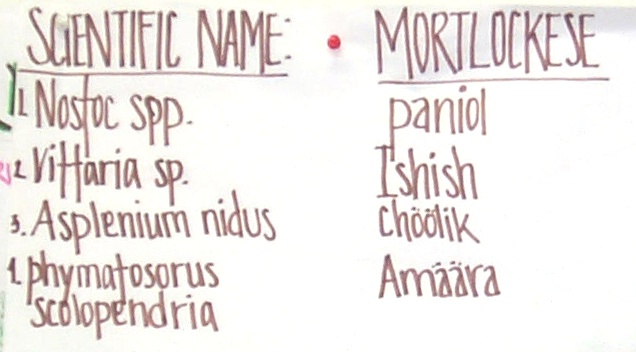 SCIENTIFIC NAME: MORTLOCKESE
1. Nostoc spp. paniol
2. Vittaria sp. Ishish
3. Asplenium nidus chöölik
4. phymatosorus Amäära
scolopendria